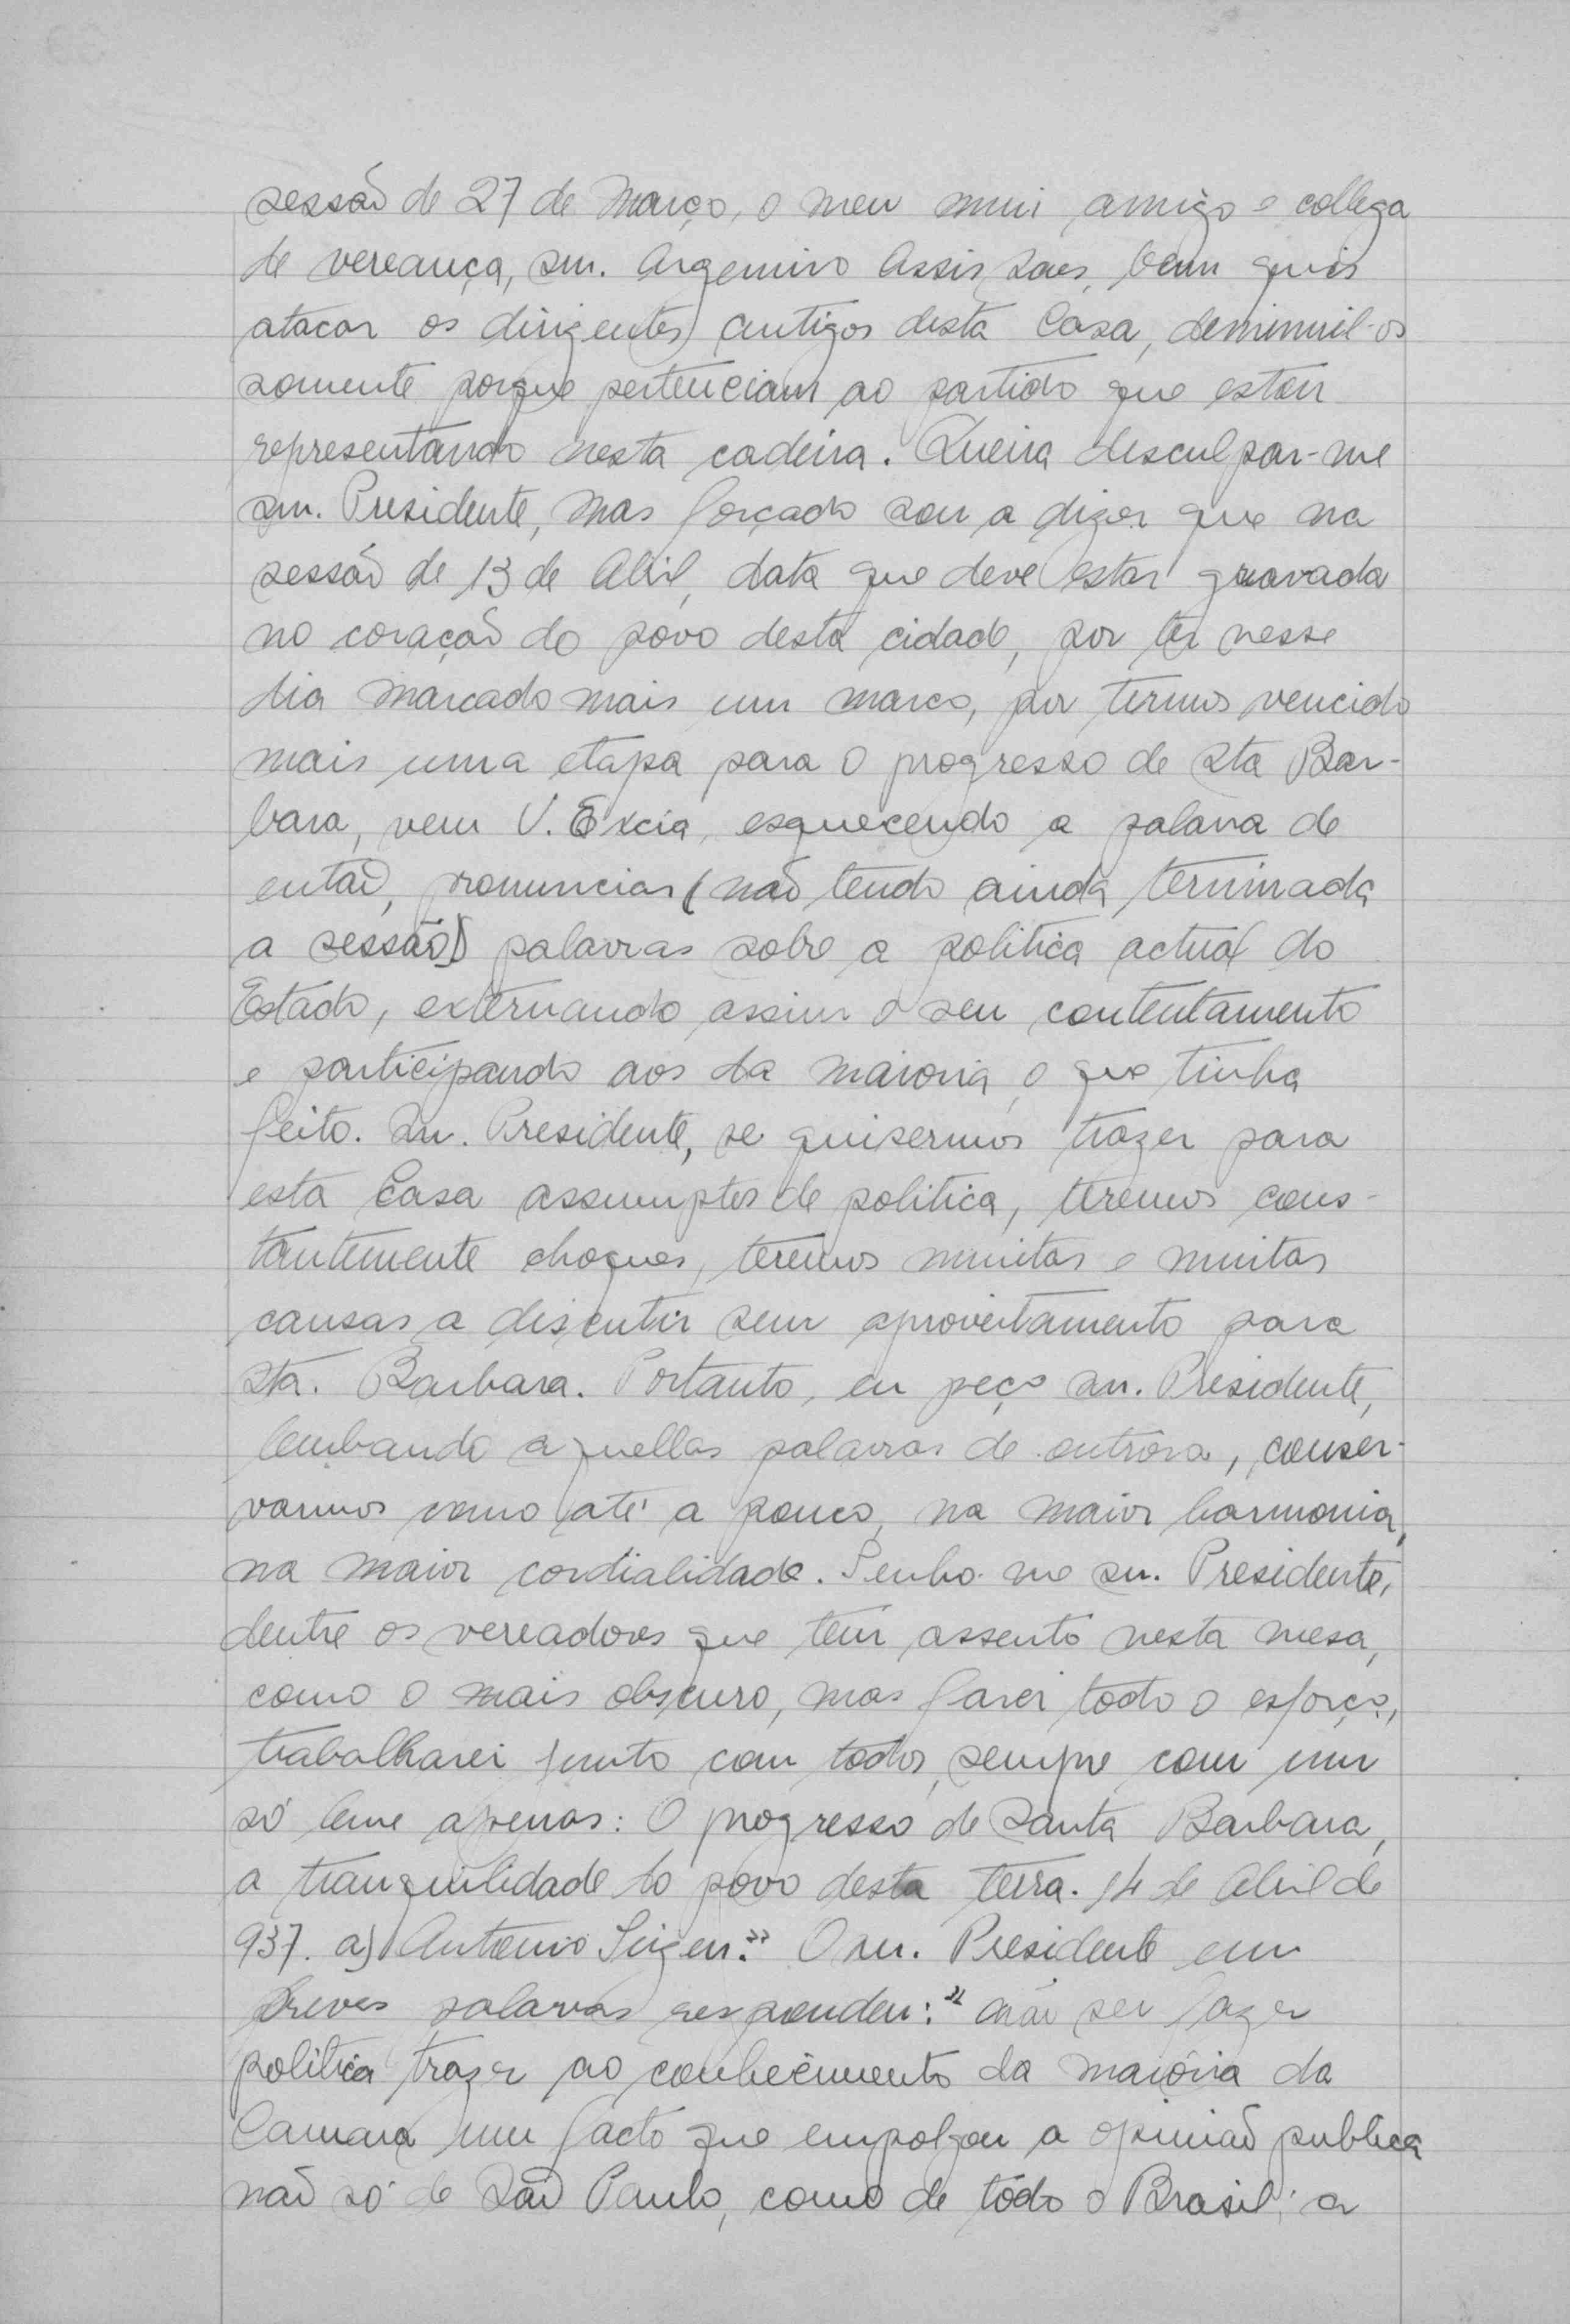 sessão de 27 de Março, o meu mui amigo e collega
de vereança, snr. Argemiro Assis Saes, bem quis
atacar os dirigentes antigos desta Casa, deminuil-os
somente porque pertenciam ao partido que estou
representando nesta cadeira. Queira desculpar-me
snr. Presidente, mas forçado sou a dizer que na
sessão de 13 de Abril, data que deve estar gravada
no coração do povo desta cidade, por ter nesse
dia marcado mais um marco, por termos vencido
mais uma etapa para o progresso de Sta Bar-
bara, vem V. Excia, esquecendo a palavra de
então, pronunciar (não tendo ainda terminada
a sessão) palavras sobre a politica actual do
Estado, externando assim o seu contentamento
e participando aos da maioria, o que tinha
feito. Snr. Presidente, se quisermos trazer para
esta Casa assumptos de politica, teremos cons-
tantemente choques, teremos muitas e muitas
causas a discutir sem aproveitamento para
Sta. Barbara. Portanto, eu peço snr. Presidente,
lembando aquellas palavras de outrora, conser-
varmos como até a pouco, na maior harmonia,
na maior cordialidade. Tenho-me snr. Presidente,
dentre os vereadores que tem assento nesta mesa,
como o mais obscuro, mas farei todo o esforço,
trabalharei junto com todos, sempre com um
só leme apenas: O progresso de Santa Barbara,
a tranquilidade do povo desta terra. 14 de Abril de
937. a) Antonio." O snr. Presidente em
breves palavras respondeu: "não ser fazer
politica trazer ao conhecimento da maioria da
Camara um facto que empolgou a opinião publica
não só de São Paulo, como de todo o Brasil; a